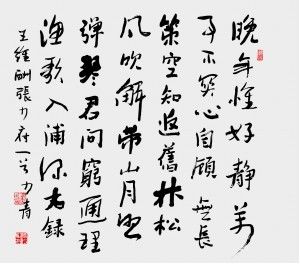 晚年惟好靜萬
事不關心自顧無長
策空知返舊林松
風吹解帶山月照
彈琴君問窮通理
漁歌入浦深右録
王維酬張少府一首